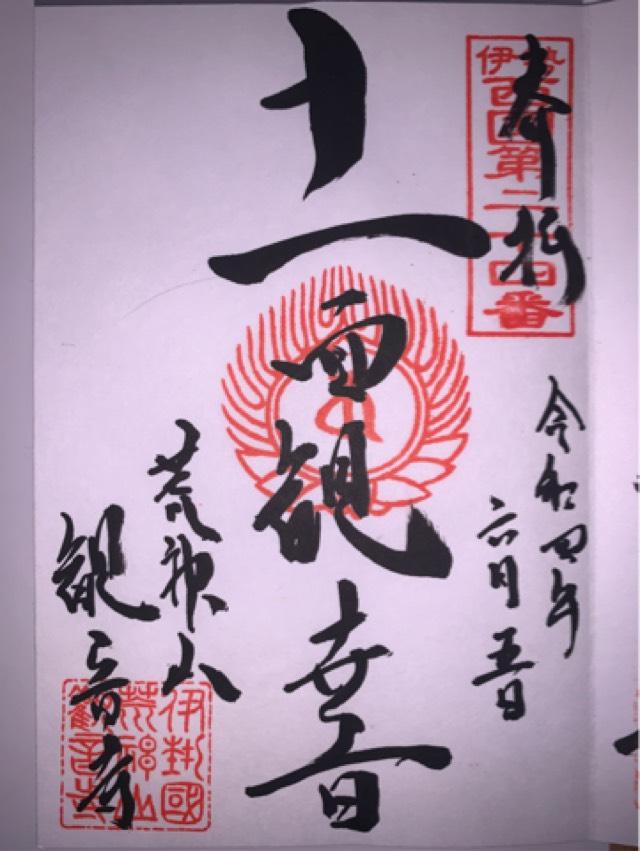 奉拝
伊勢
西国第二十四番
令和四年
六月五日
十一面観世音
荒神山
観音寺
伊勢國
荒神山
觀音寺